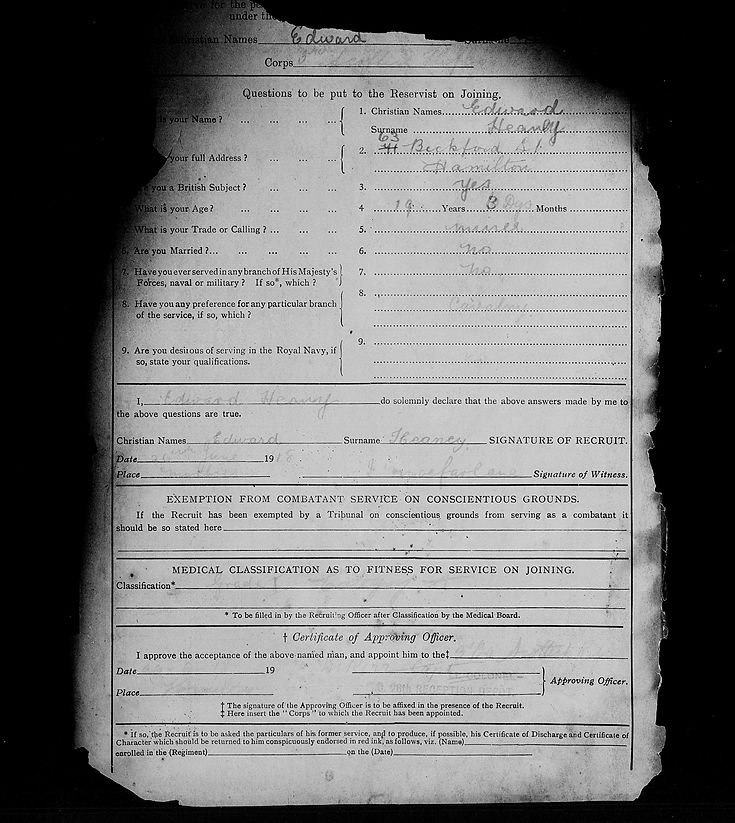 under the
Christian Names Edward
Corps
Questions to be put to the Reservist on Joining.
is your Name? ... ... ... ... 1. Christian Names Edward
Surname Heanly
63
your full Address? ... ... ... 2. 41 Beckford St
Hamilton
you a British Subject? ... ... ... 3. Yes
What is your Age? ... ... ... ... 4 19 Years 3 Dys Months
What is your Trade or Calling? ... ... ... 5. miner
6. Are you Married?... ... ... ... 6. No
7. Have you ever served in any branch of His Majesty's 7. No
Forces, naval or military? If so*, which?
8. Have you any preference for any particular branch 8. Cavalry
of the service, if so, which?
9. Are you desirous of serving in the Royal Navy, if 9.
so, state your qualifications.
I, Edward Heaney do solemnly declare that the above answers made by me to
the above questions are true.
Christian Names Edward Surname Heaney SIGNATURE OF RECRUIT.
Date June 1918
Place Signature of Witness.
EXEMPTION FROM COMBATANT SERVICE ON CONSCIENTIOUS GROUNDS.
If the Recruit has been exempted by a Tribunal on conscientious grounds from serving as a combatant it
should be so stated here
MEDICAL CLASSIFICATION AS TO FITNESS FOR SERVICE ON JOINING.
Classification* Grade I
* To be filled in by the Recruiting Officer after Classification by the Medical Board.
† Certificate of Approving Officer.
I approve the acceptance of the above-named man, and appoint him to the‡
Date 19 COLONEL
Approving Officer.
Place RECEPTION
† The signature of the Approving Officer is to be affixed in the presence of the Recruit.
‡ Here insert the "Corps" to which the Recruit has been appointed.
* If so, the Recruit is to be asked the particulars of his former service, and to produce, if possible, his Certificate of Discharge and Certificate of
Character which should be returned to him conspicuously endorsed in red ink, as follows, viz. (Name)
enrolled in the (Regiment) on the (Date)